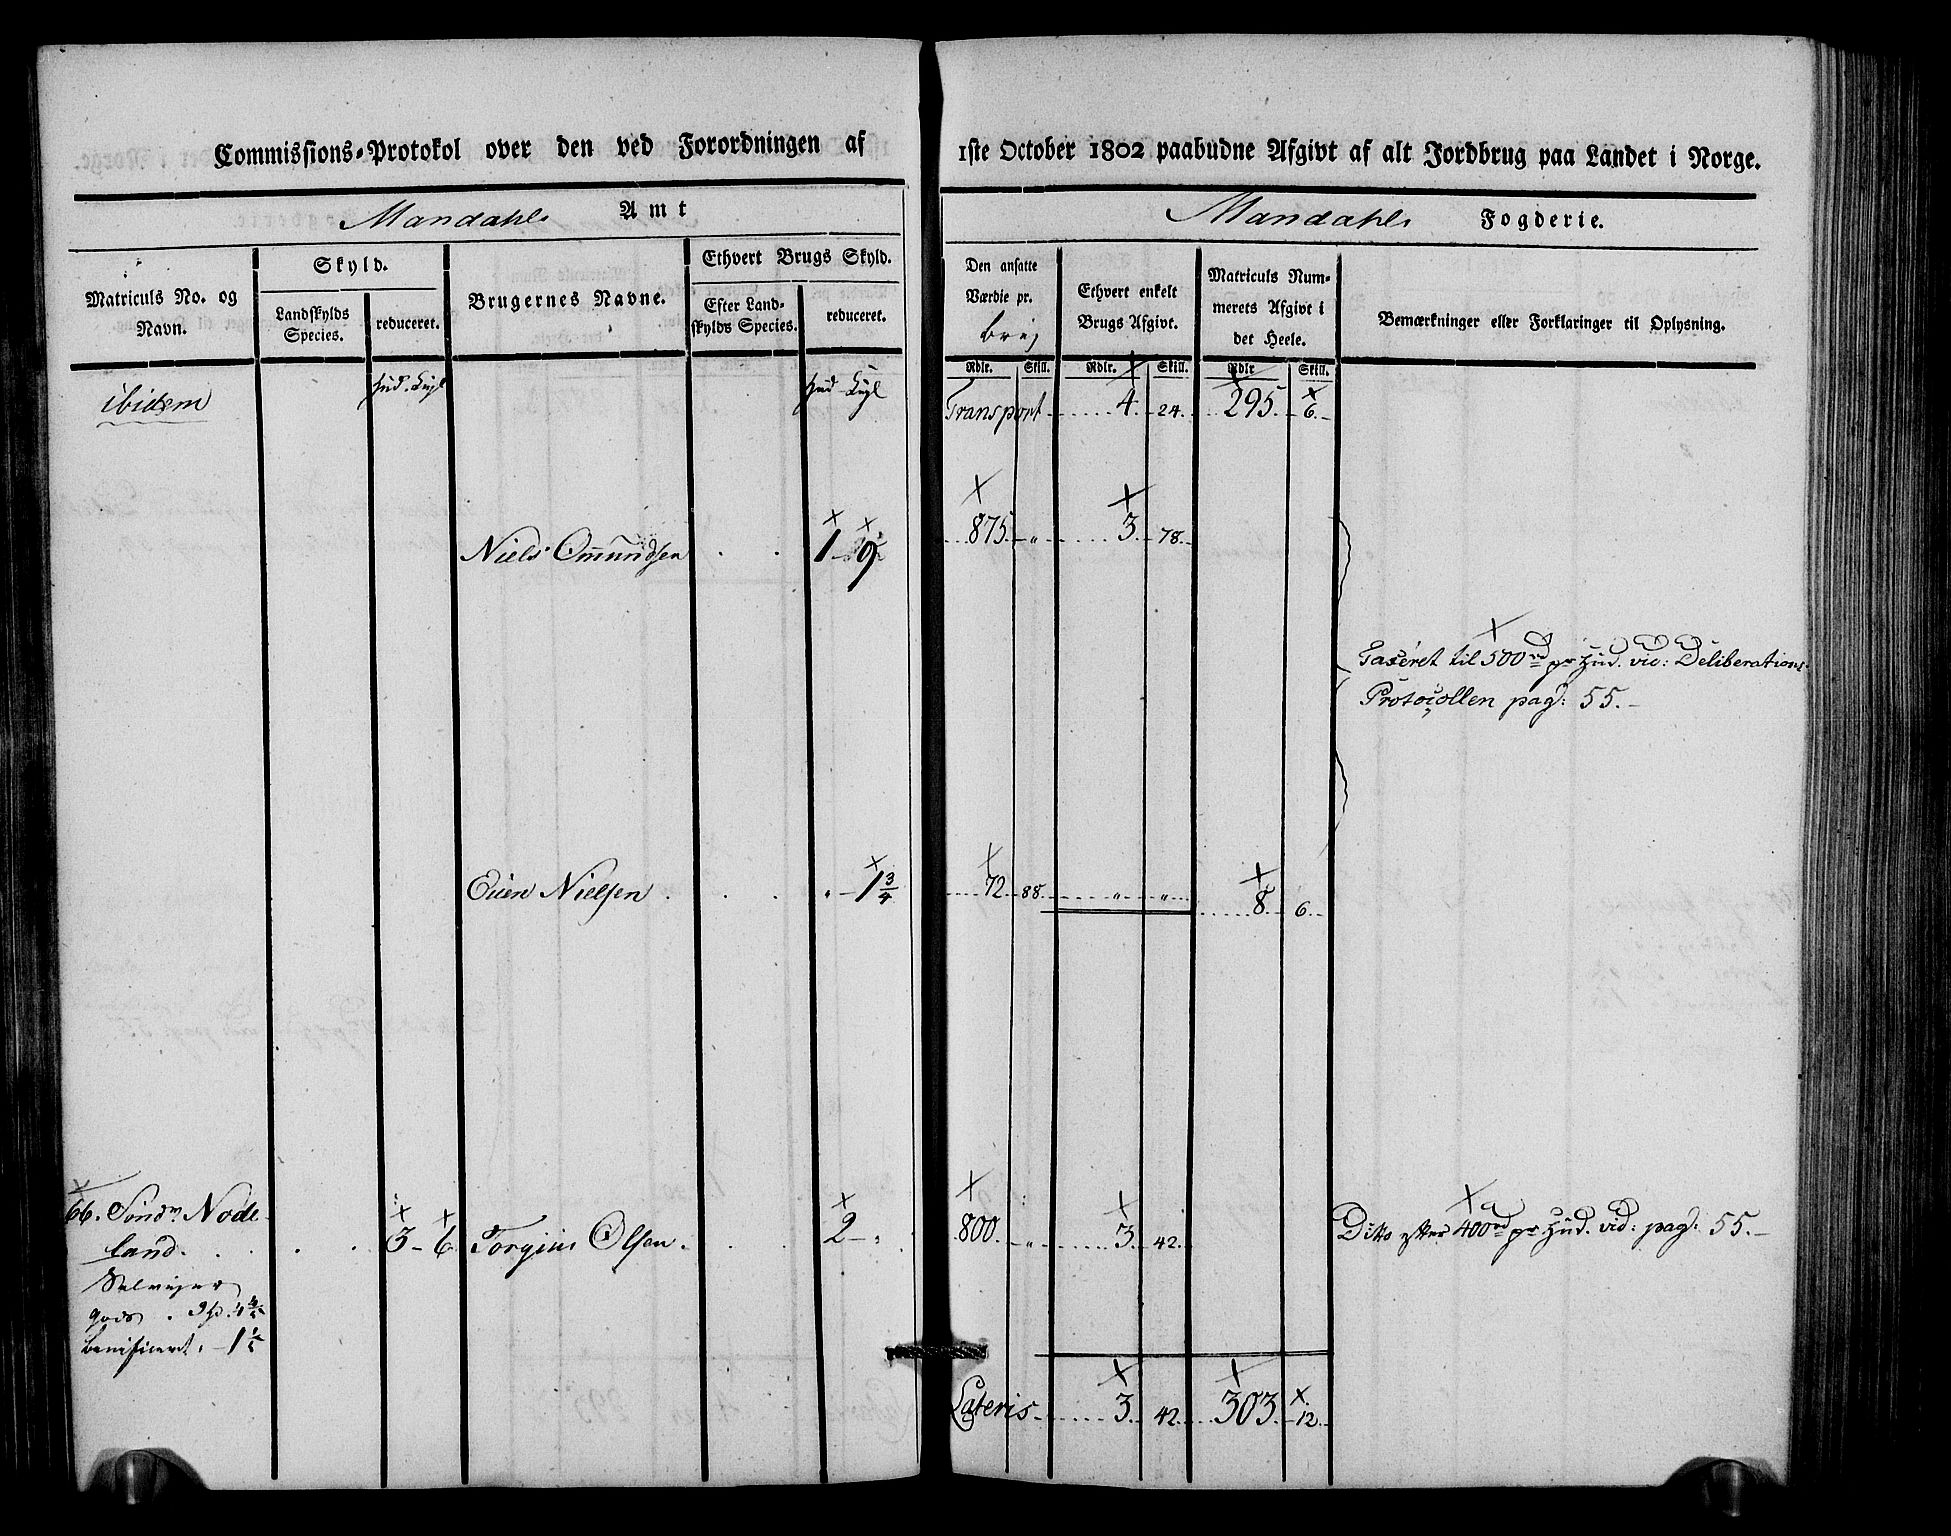 Commissions-Protokol over den ved Forordningen af 1ste October 1802 paabudne Afgivt af alt Jordbrug paa Landet i Norge.
Mandahls Amt
Mandahls Fogderie.
Matriculs No. og Navn.
Skyld.
Landskylds Species.
reduceret.
Brugernes Navne.
Ethvert Brugs Skyld.
Efter Land-skylds Species.
reduceret.
Den ansatte Værdie pr.
Ethvert enkelt Brugs Afgivt.
Matriculs Nummerets Afgivt i det Heele.
Bemærkninger eller Forklaringer til Oplysning.
Rdlr. Skill. Rdlr. Skill. Rdlr Skill.
ibidem
Transport 4 24 295 6
Niels Omundsen 1 9 875 " 3 78
Taxeret til 500 rd pr Hud. vid: Deliberations-
Protocollen pag: 55.
Nielsen " 1 3/4 72 88 " " 8 6
66. Sondr Node-
land. 3 6 Torgius Olsen 2 " 800 " 3 42 Ditto efter 400 rd pr Hud. vid: pag: 55.
Selveier
gods
benificeret 1 1/2
Lateris 3 42 303 12